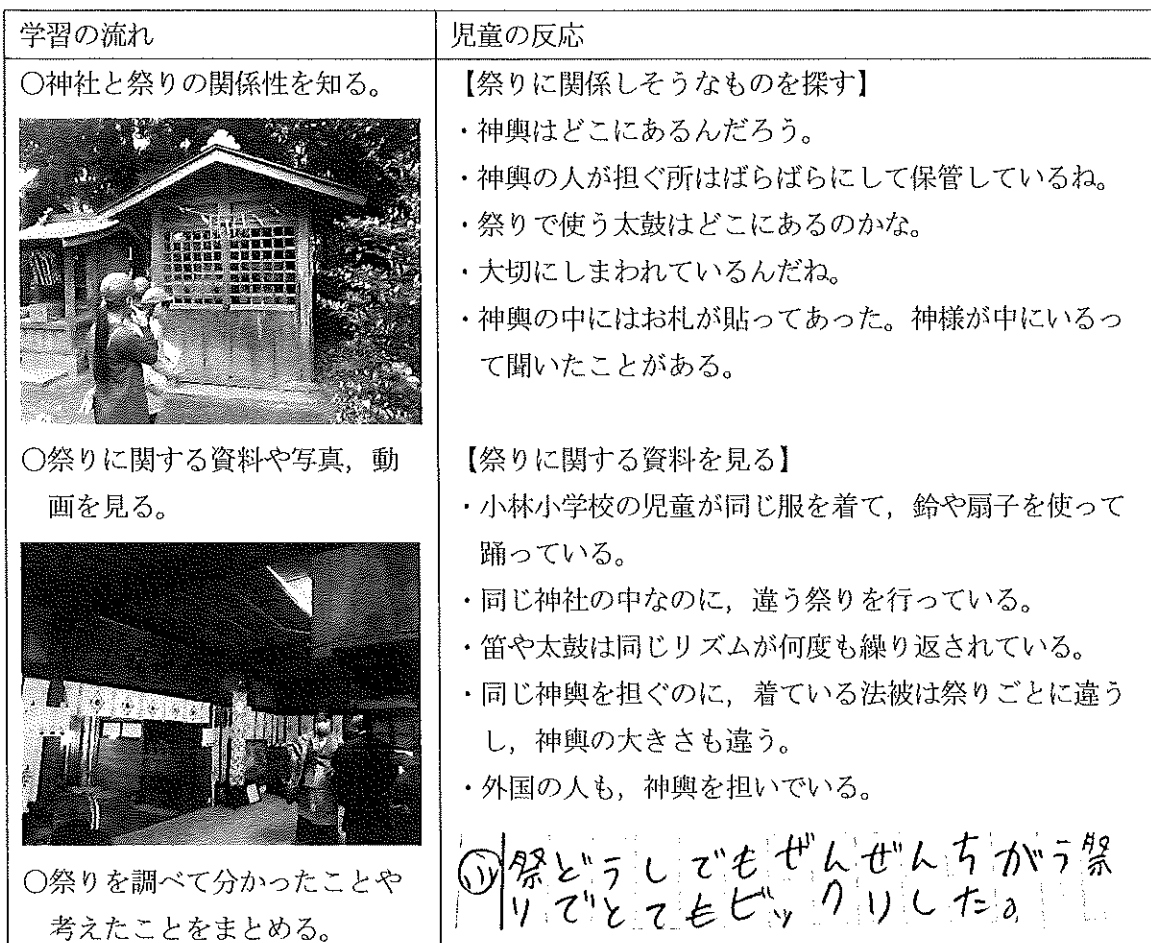 学習の流れ
児童の反応
〇神社と祭りの関係性を知る。
【祭りに関係しそうなものを探す】
・神輿はどこにあるんだろう。
・神輿の人が担ぐ所はばらばらにして保管しているね。
・祭りで使う太鼓はどこにあるのかな。
・大切にしまわれているんだね。
・神輿の中にはお札が貼ってあった。神様が中にいるっ
て聞いたことがある。
〇祭りに関する資料や写真，動
画を見る。
【祭りに関する資料を見る】
・小林小学校の児童が同じ服を着て，鈴や扇子を使って
踊っている。
・同じ神社の中なのに，違う祭りを行っている。
・笛や太鼓は同じリズムが何度も繰り返されている。
・同じ神輿を担ぐのに，着ている法被は祭りごとに違う
し，神輿の大きさも違う。
・外国の人も，神輿を担いでいる。
〇祭りを調べて分かったことや
考えたことをまとめる。
祭どうしでもぜんぜんちがう祭
りでとてもビックリした。